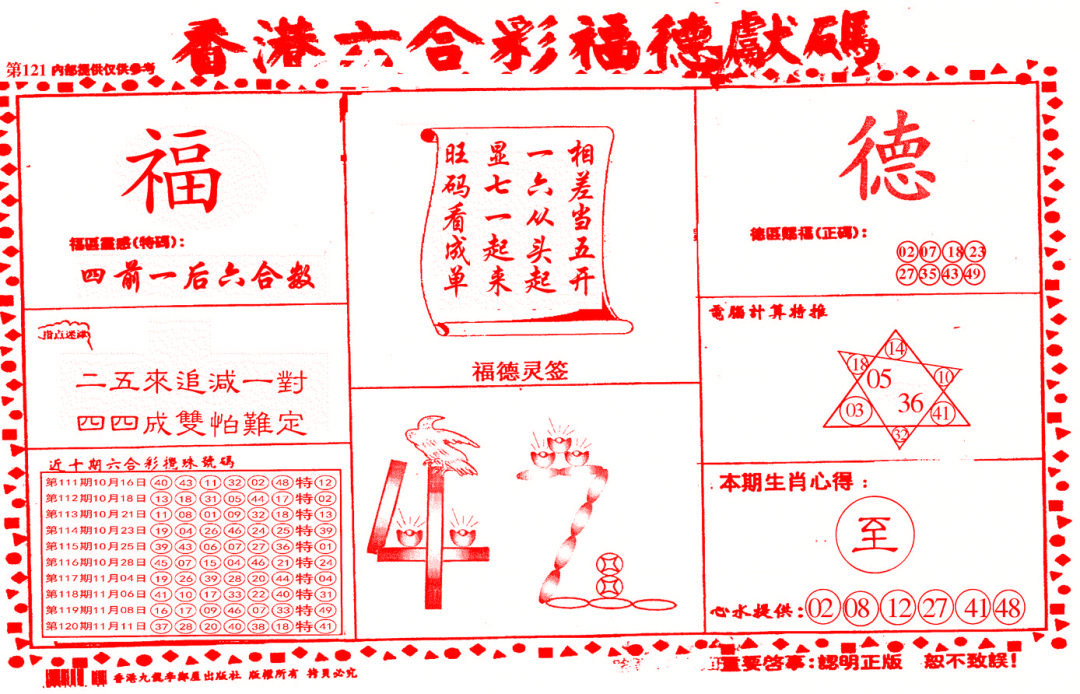 香港六合彩福德獻碼
第121 内部提供仅供参考
福
福區靈感(特碼):
四前一后六合数
指点迷津
二五來追減一對
四四成雙怕難定
近十期六合彩攪珠號碼
第111期10月16日 40 43 11 32 02 48 特 12
第112期10月18日 13 18 31 05 44 17 特 02
第113期10月21日 11 08 01 09 32 18 特 13
第114期10月23日 19 04 26 46 24 25 特 39
第115期10月25日 39 43 06 07 27 36 特 01
第116期10月28日 45 07 15 04 46 21 特 24
第117期11月04日 19 26 39 28 20 44 特 04
第118期11月06日 41 10 17 33 22 40 特 31
第119期11月08日 16 17 09 46 07 33 特 49
第120期11月11日 37 28 20 40 38 18 特 41
相差当五开
一六从头起
显七一起来
旺码看成单
福德灵签
德
德區賜福(正碼):
02 07 18 23
27 35 43 49
電腦計算特推
14
18 10
05
36
03 41
32
本期生肖心得:
至
心水提供: 02 08 12 27 41 48
香港九龍李鄭屋出版社 版權所有 拷貝必究
重要啓事:認明正版 恕不致誤!